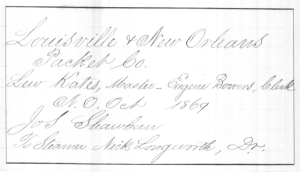 Louisville & New Orleans
Packet Co.
Lew Kates, Master – Eugene Bowers, Clerk
N.O. Oct 1869
Jos Shawhan
To Steamer Nick Longworth, Dr.